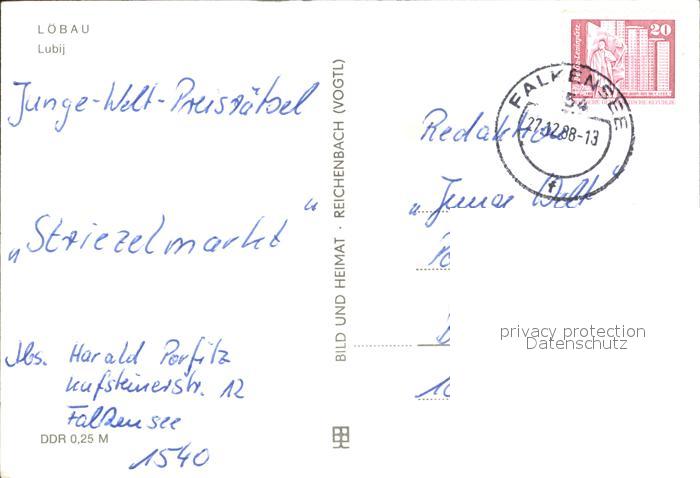 LÖBAU
Lubij
Junge-Welt-Preisrätsel
„Striezelmarkt"
Abs. Harald Porfitz
Kufsteinerstr. 12
Falkensee
1540
DDR 0,25 M
BILD UND HEIMAT · REICHENBACH (VOGTL)
20
FALKENSEE
54
27.12.88-13
f
Redaktion
„Junge Welt"
privacy protection
Datenschutz